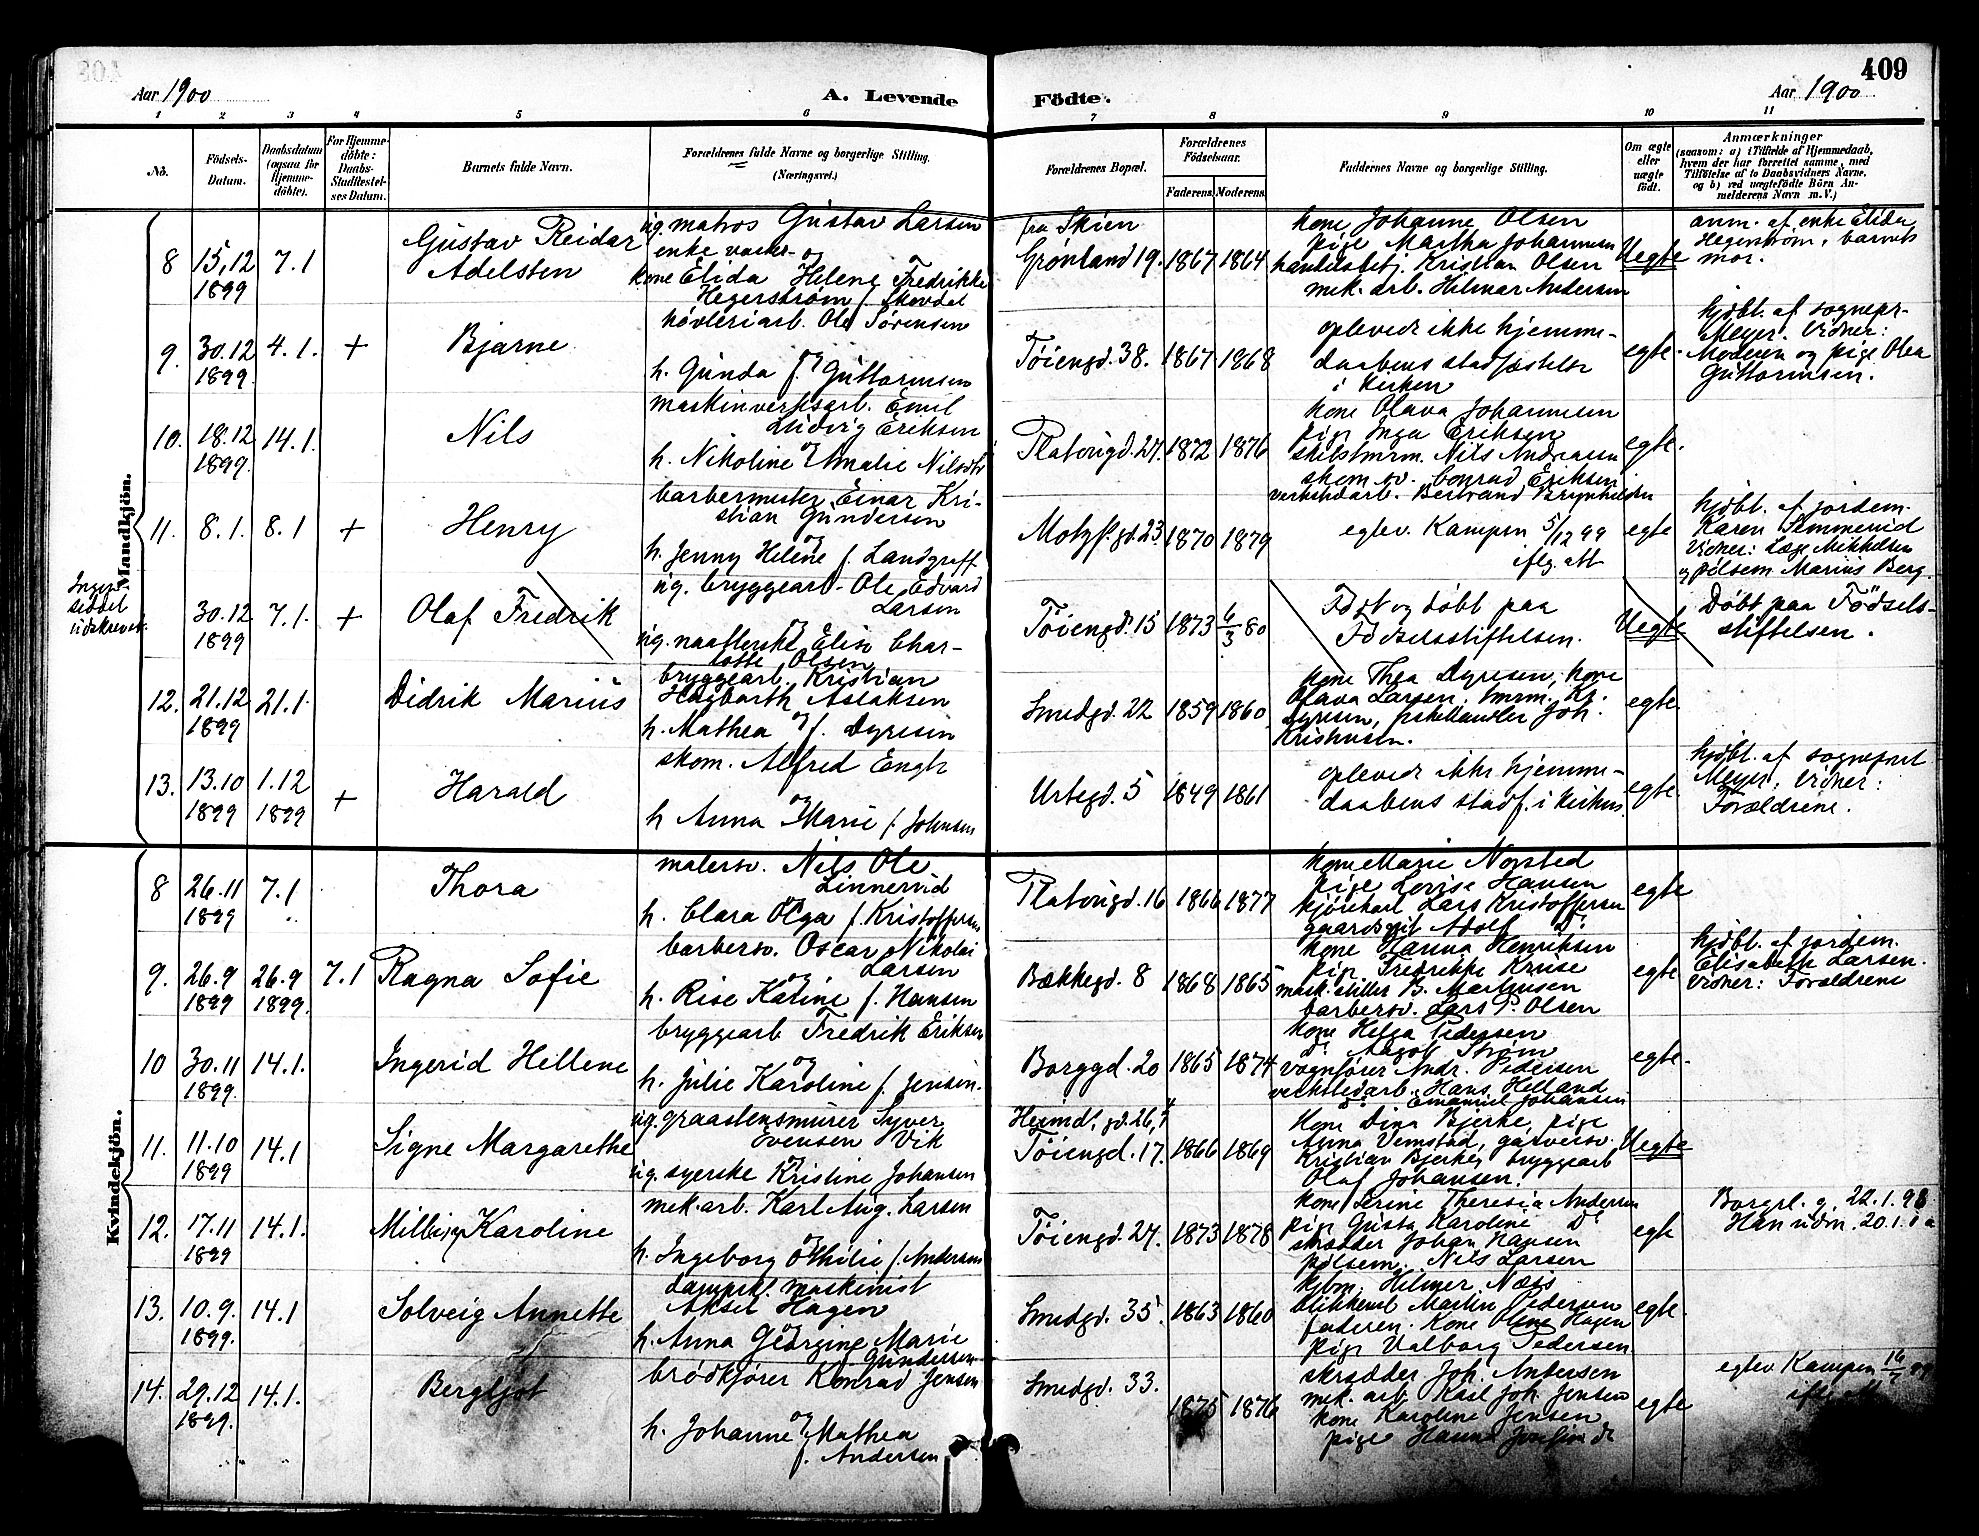 409
Aar 1900
A. Levende Födte.
Aar 1900
1 2 3 4 5 6 7 8 9 10 11
No.
Födsels-Datum.
Daabsdatum (ogsaa for Hjemme-döbte).
For Hjemme-döbte: Daabs-Stadfæstel-ses Datum.
Barnets fulde Navn.
Forældrenes fulde Navne og borgerlige Stilling.
(Næringsvei.)
Forældrenes Bopæl.
Forældrenes Födselsaar.
Faderens. Moderens.
Faddernes Navne og borgerlige Stilling.
Om ægte eller uægte födt.
Anmærkninger
(saasom: a) i Tilfælde af Hjemmedaab, hvem der har forrettet samme, med Tilföielse af to Daabsvidners Navne, og b) ved uægtefödte Börn An-melderens Navn m. V.)
Mandkjön.
8 15,12 1899 7.1 Gustav Reidar Adelsten
ug. matros Gustav Larsen
enke vasker- og
kone Elida Helene Fredrikke
Hegerström f. Skovdal
fra Skien
Grønland 19. 1867 1864
kone Johanne Olsen
pige Martha Johannesen
handelsbetj. Kristian Olsen
mek. arb. Hilmar Andersen
Uegte
anm. af enke Elida
Hegerström, barnets
mor.
9. 30.12 1899. 4.1. + Bjarne
høvleriarb. Ole Sørensen
og
h. Gunda f. Guttormsen
Tøiengd. 38. 1867 1868
oplevede ikke hjemme-
daabens stadfæstelse
i kirken
egte.
hjdbt. af sognepr.
Meyer. Vidner:
Moderen og pige Olea
Guttormsen.
10. 18.12 1899. 14.1. Nils
maskinverksarb. Emil
Ludvig Eriksen
og
h. Nikoline Amalie Nilsdtr
Platougd. 27. 1872 1876
kone Olava Johannesen
pige Inga Eriksen
Nils Andreassen
skom. sv. Conrad Eriksen
verkstedarb. Bertrand Brynhildsen
egte.
11. 8.1. 8.1 + Henry
barbermester Einar Kri-
stian Gundersen
og
h. Jenny Helene f. Landgraff
gd. 23. 1870 1879
egtev. Kampen 5/12 99
iflg. att
egte
hjdbt. af jordem.
Karen
Vidner: Læge Mikkelsen
og pølsem Marius Berg.
Ingen
seddel
udskrevet.
30.12 1899 7.1. + Olaf Fredrik
ug. bryggearb. Ole Edvard
Larsen
og
ug. Elise Char-
lotte Olsen
Tøiengd. 15 1873 6/3 80
Født og døbt paa
Fødselsstiftelsen.
Uegte
Døbt paa Fødsels-
stiftelsen.
12. 21.12 1899 21.1. Didrik Marius
bryggearb. Kristian
Hagbarth Aslaksen
og
h. Mathea f. Dyresen
Smedgd. 22 1859 1860
kone Thea Dyresen, kone
Olava Larsen, tmrm. Kr.
Dyresen, fiskehandler Joh.
Kristensen.
egte.
13. 13.10 1899 1.12 1899 + Harald
skom. Alfred Engh
og
h Anna Marie f. Johnsen
Urtegd. 5 1849 1861
oplevede ikke hjemme-
daabens stadf. i kirken.
egte.
hjdbt. af sogneprest
Meyer. Vidner:
Forældrene.
Kvindekjön.
8 26.11 1899 7.1 Thora
malersv. Nils Ole
Linnerud
og
h. Clara Olga f. Kristoffersen
Platougd. 16 1866 1877
kone Marie Norsted
pige Lovise Hansen
kjørekarl Lars Kristoffersen
gaardsgut Adolf Do
egte
9. 26.9 1899 26.9 1899. 7.1 Ragna Sofie
barbersv. Oscar Nikolai
Larsen
og
h. Rise Katine f. Hansen
Bækkegd. 8 1868 1865
kone Hanna Henriksen
pige Fredrikke Kruse
mask. stiller B. Martinsen
barbersv. Lars P. Olsen
egte
hjdbt. af jordem.
Elisabeth Larsen.
Vidner: Forældrene
10 30.11 1899 14.1. Ingerid Hellene
bryggearb Fredrik Eriksen
og
h. Julie Karoline f. Jensen.
Borggd. 20 1865 1874
kone Helga Pedersen
Do Aagot Strøm
vognfører Andr. Pedersen
verkstedarb. Hans Helland
Do Emanuel Johansen
egte.
11. 11.10 1899 14.1 Signe Margarethe
ug. graastensmurer Syver
Evensen Vik
og
ug. syerske Kristine Johansen
Heimdl. gd. 26,4
Tøiengd. 17. 1866 1869
kone Dina Bjerke, pige
Anna Vemstad, garversv.
Kristian Bjerke, bryggearb
Olaf Johansen.
Uegte
12. 17.11 1899 14.1. Milly Karoline
mek. arb. Karl Aug. Larsen
og
h. Ingeborg Othilie f. Andersen
Tøiengd. 27. 1873 1878
kone Serine Theresia Andersen
pige Gusta Karoline Do
skrædder Johan Hansen
pølsem. Nils Larsen
egte
Borgerl. g. 22.1.98
Han udm. 20.1.
13. 10.9. 1899. 14.1 Solveig Annette
dampsk. maskinist
Aksel Hagen
og
h. Anna Georgine Marie
Gundersen
Smedgd. 35 1863 1860
kjbm. Hilmer Næss
blikkensl. Martin Pedersen
faderen. Kone Hagen
pige Valborg Pedersen
egte.
14. 29.12 1899. 14.1. Bergljot
brødkjører Konrad Jensen
og
h. Johanne Mathea
f. Andersen
Smedgd. 33. 1875 1876
skrædder Joh. Andersen
mek. arb Karl Joh. Jensen
kone Karoline Jensen
pige Hanna
egte
egtev Kampen 16/7 99